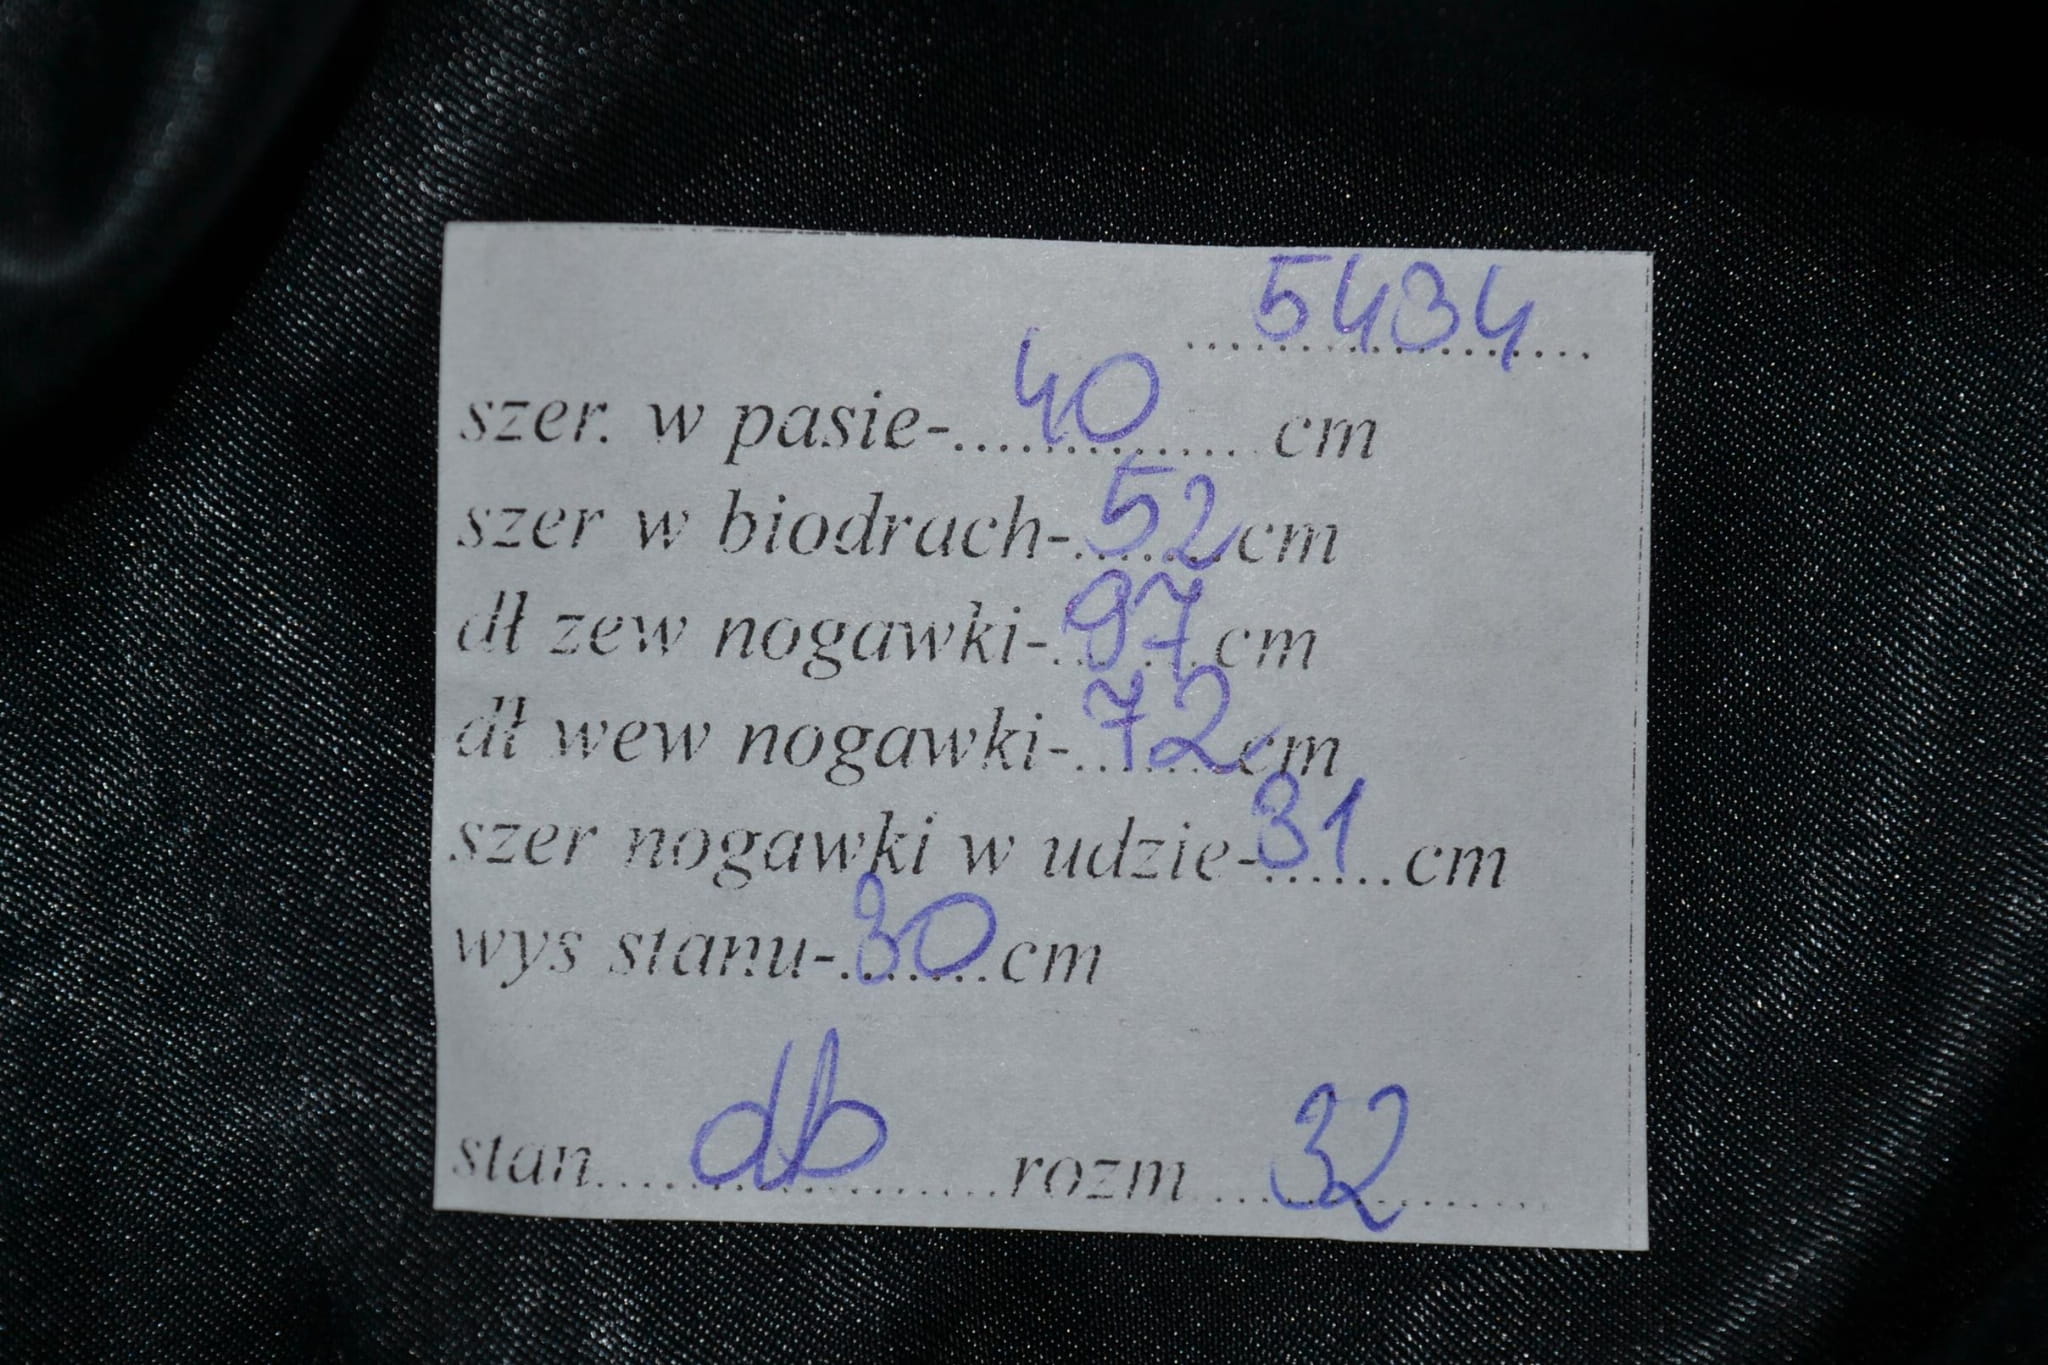 5434
szer. w pasie-....40....... cm
szer w biodrach-.52.cm
dł zew nogawki-.97.cm
dł wew nogawki-.72.cm
szer nogawki w udzie-31...cm
wys stanu-.30.cm
stan....db..........rozm ...32........